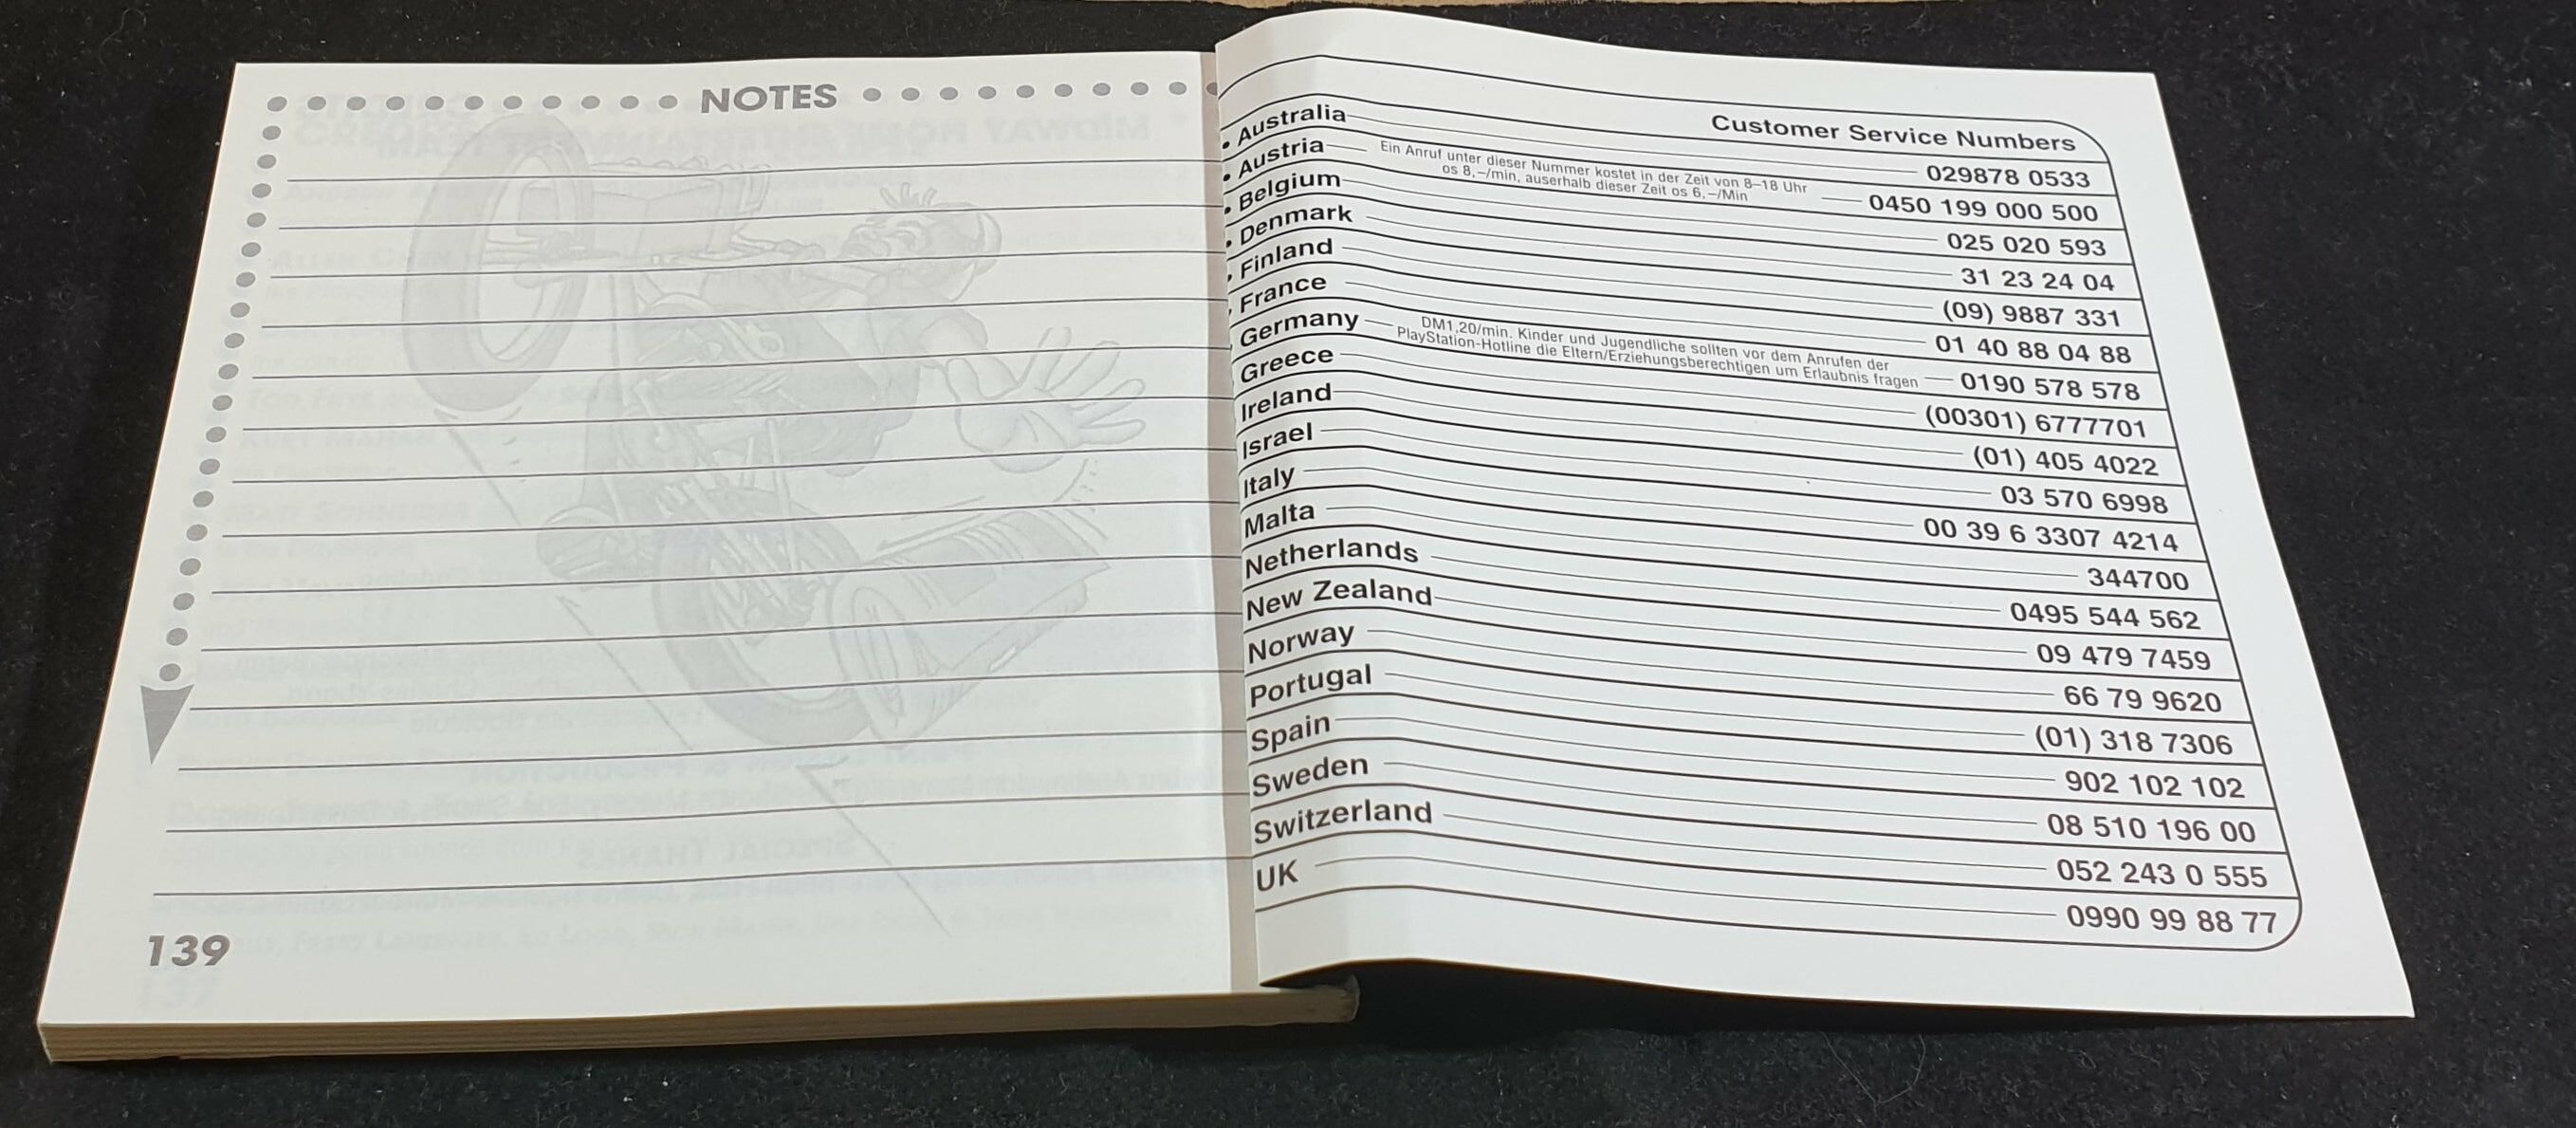 NOTES
139
Customer Service Numbers
• Australia 029878 0533
• Austria Ein Anruf unter dieser Nummer kostet in der Zeit von 8–18 Uhr
os 8,–/min, auserhalb dieser Zeit os 6,–/Min 0450 199 000 500
• Belgium 025 020 593
• Denmark 31 23 24 04
• Finland (09) 9887 331
• France 01 40 88 04 88
Germany DM1,20/min. Kinder und Jugendliche sollten vor dem Anrufen der
PlayStation-Hotline die Eltern/Erziehungsberechtigen um Erlaubnis fragen 0190 578 578
Greece (00301) 6777701
Ireland (01) 405 4022
Israel 03 570 6998
Italy 00 39 6 3307 4214
Malta 344700
Netherlands 0495 544 562
New Zealand 09 479 7459
Norway 66 79 9620
Portugal (01) 318 7306
Spain 902 102 102
Sweden 08 510 196 00
Switzerland 052 243 0 555
UK 0990 99 88 77